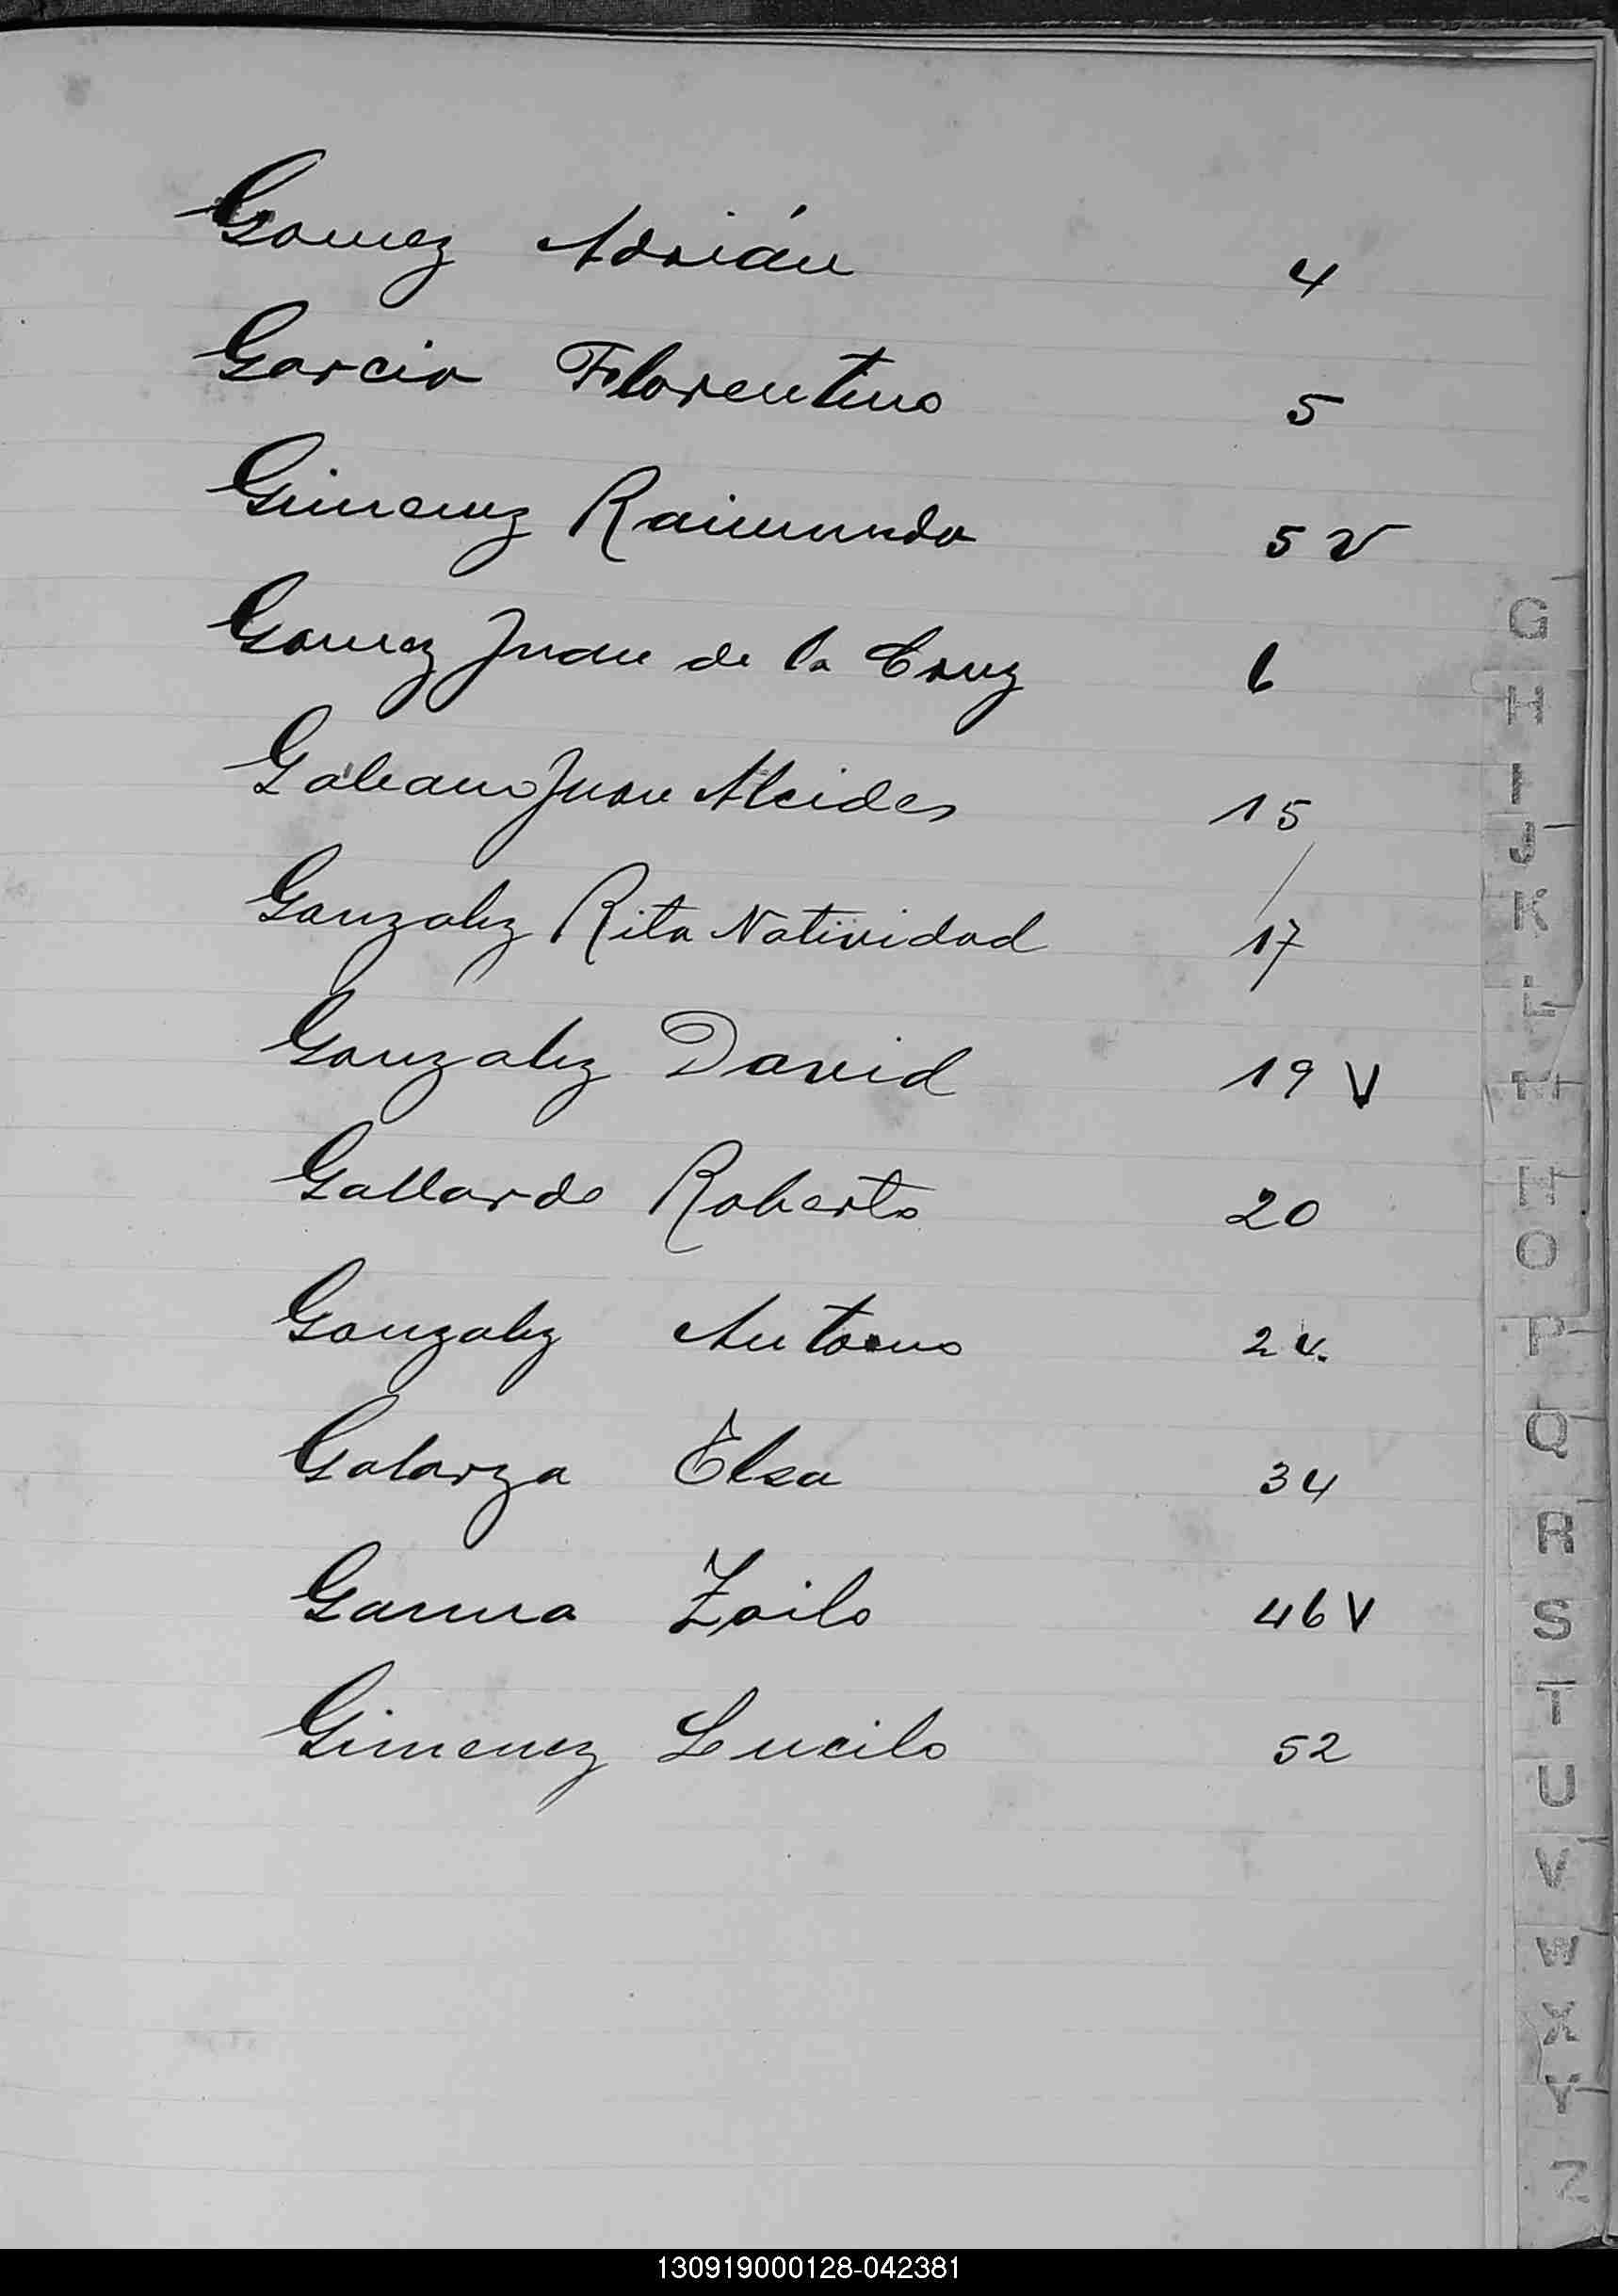 Gomez Adrián 4
Garcia Florentino 5
Gimenez Raimundo 5 v
Gomez Juan de la Cruz 6
Galeano Juan Alcides 15
Gonzalez Rita Natividad 17
Gonzalez David 19 V
Gallardo Roberto 20
Gonzalez Antonio 24.
Galarza Elsa 34
Gamma Zoilo 46 V
Gimenez Lucilo 52
G
H
I
J
K
L
M
N
O
P
Q
R
S
T
U
V
W
X
Y
Z
130919000128-042381